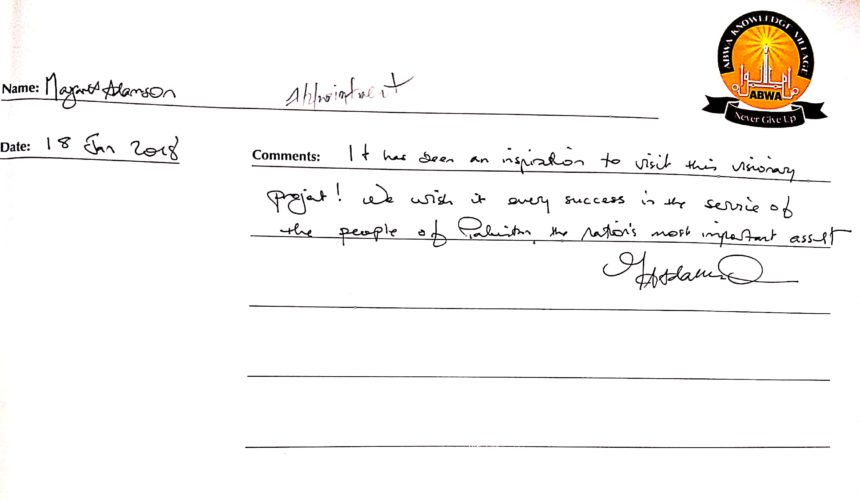 ABWA KNOWLEDGE VILLAGE
ABWA
Never Give Up
Name: Margaret Adamson
Date: 18 Jan 2018
Comments: It has been an inspiration to visit this visionary
project! We wish it every success in the service of
the people of Pakistan, the nation's most important asset